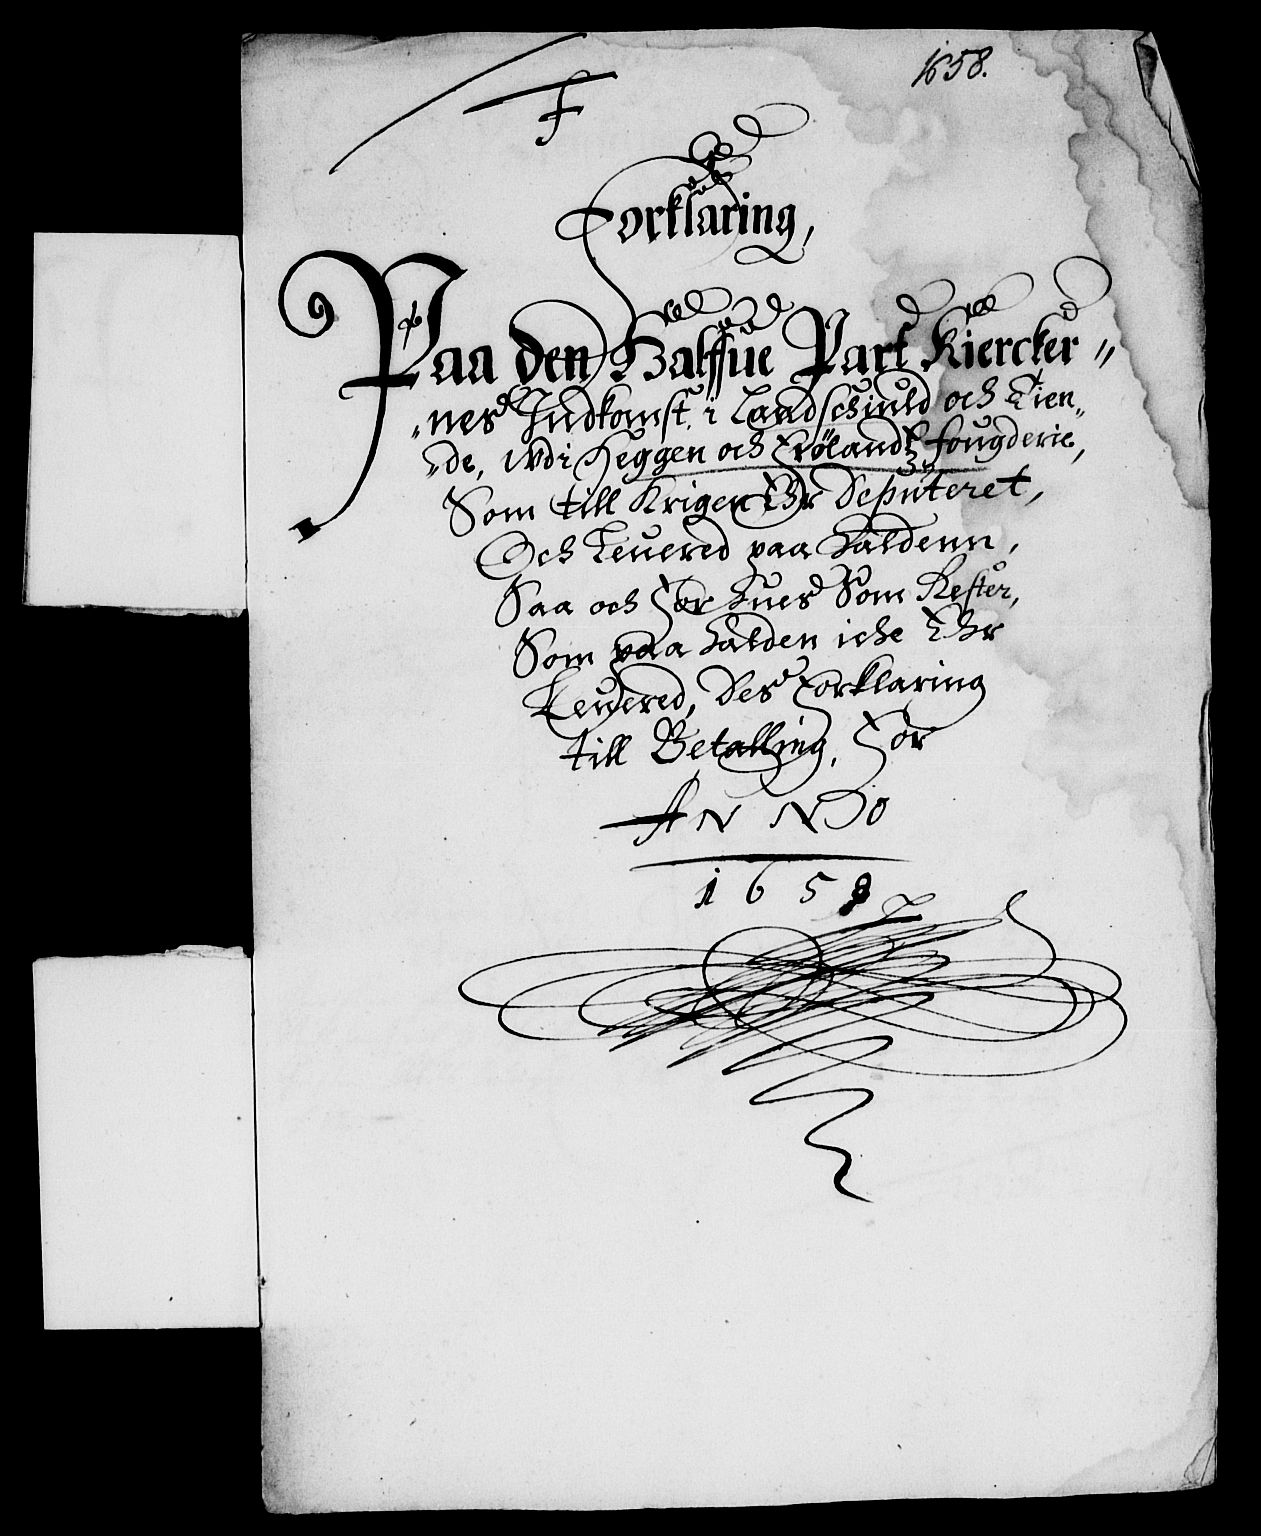 1658.
F
Forklaring,
Paa den Halffue Part Kiercker "
"nes Indkomst, i Landschiuld och Tien"
"de, wdi Heggen och Frølandtz fougderie,
Som till Krigen Ehr Deputeret,
Och Leuered paa Halden,
Saa och For hues Som Rester,
Som paa Halden iche Ehr
Leuered, Des Forklaring
till Betalling, For
ANNO
1658